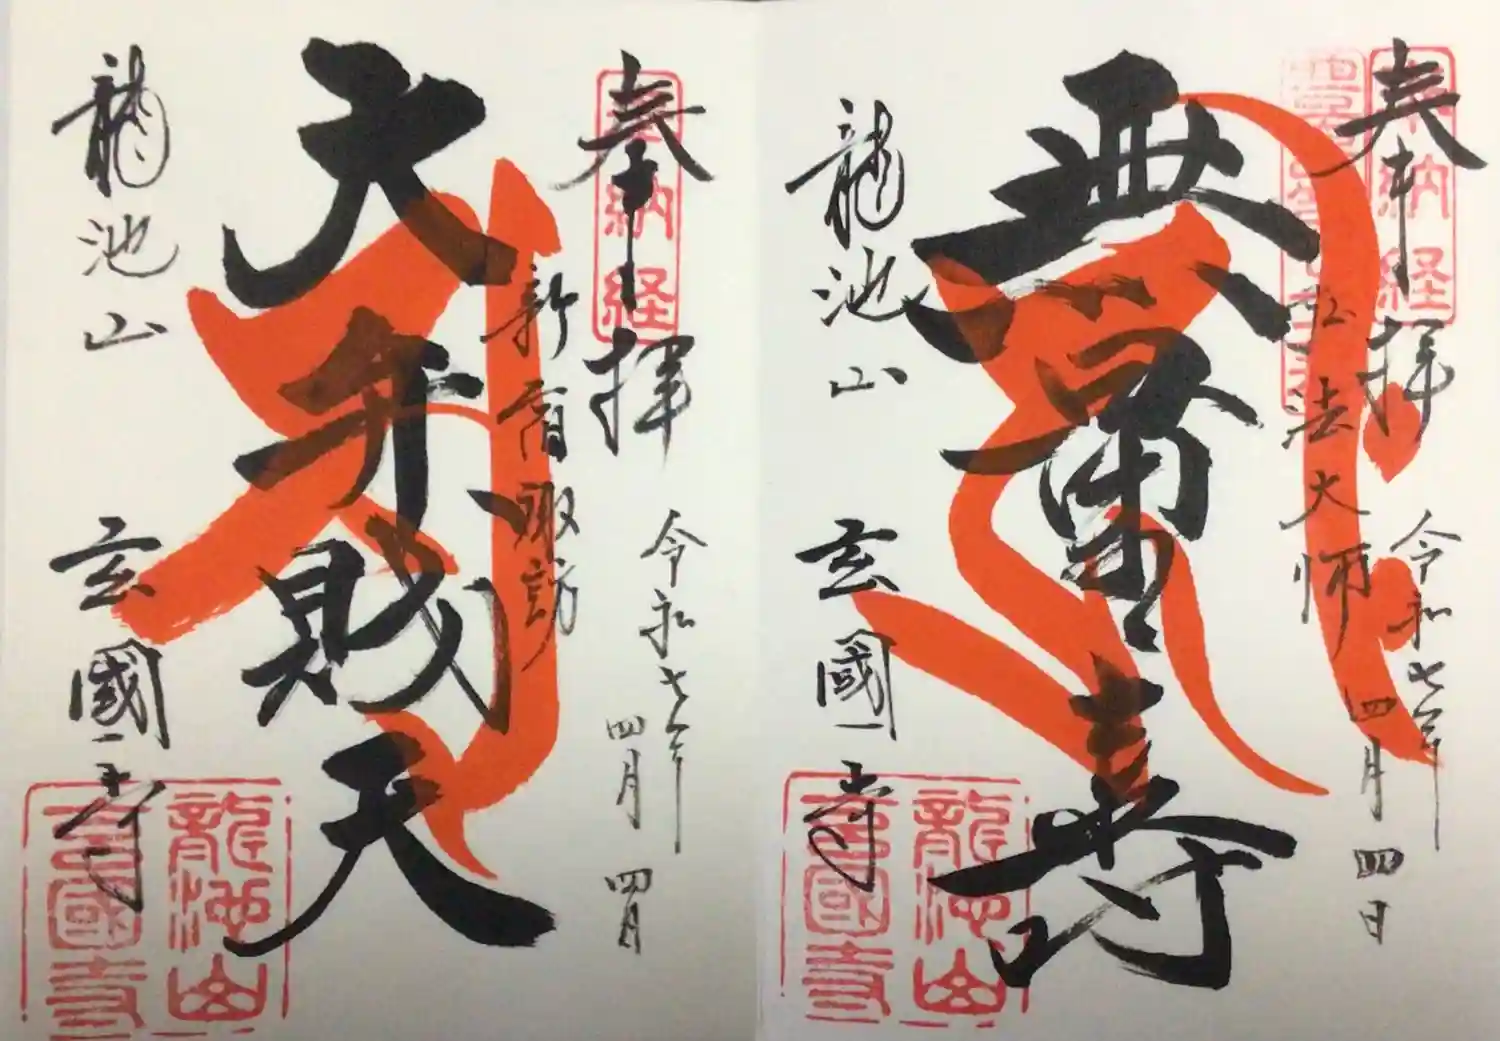 奉拝
令和七年
四月四日
奉納経
弘法大師
無量寿
龍池山
玄國寺
龍池山
玄國寺
奉拝
令和七年
四月四日
奉納経
新宿諏訪
大弁財天
龍池山
玄國寺
龍池山
玄國寺